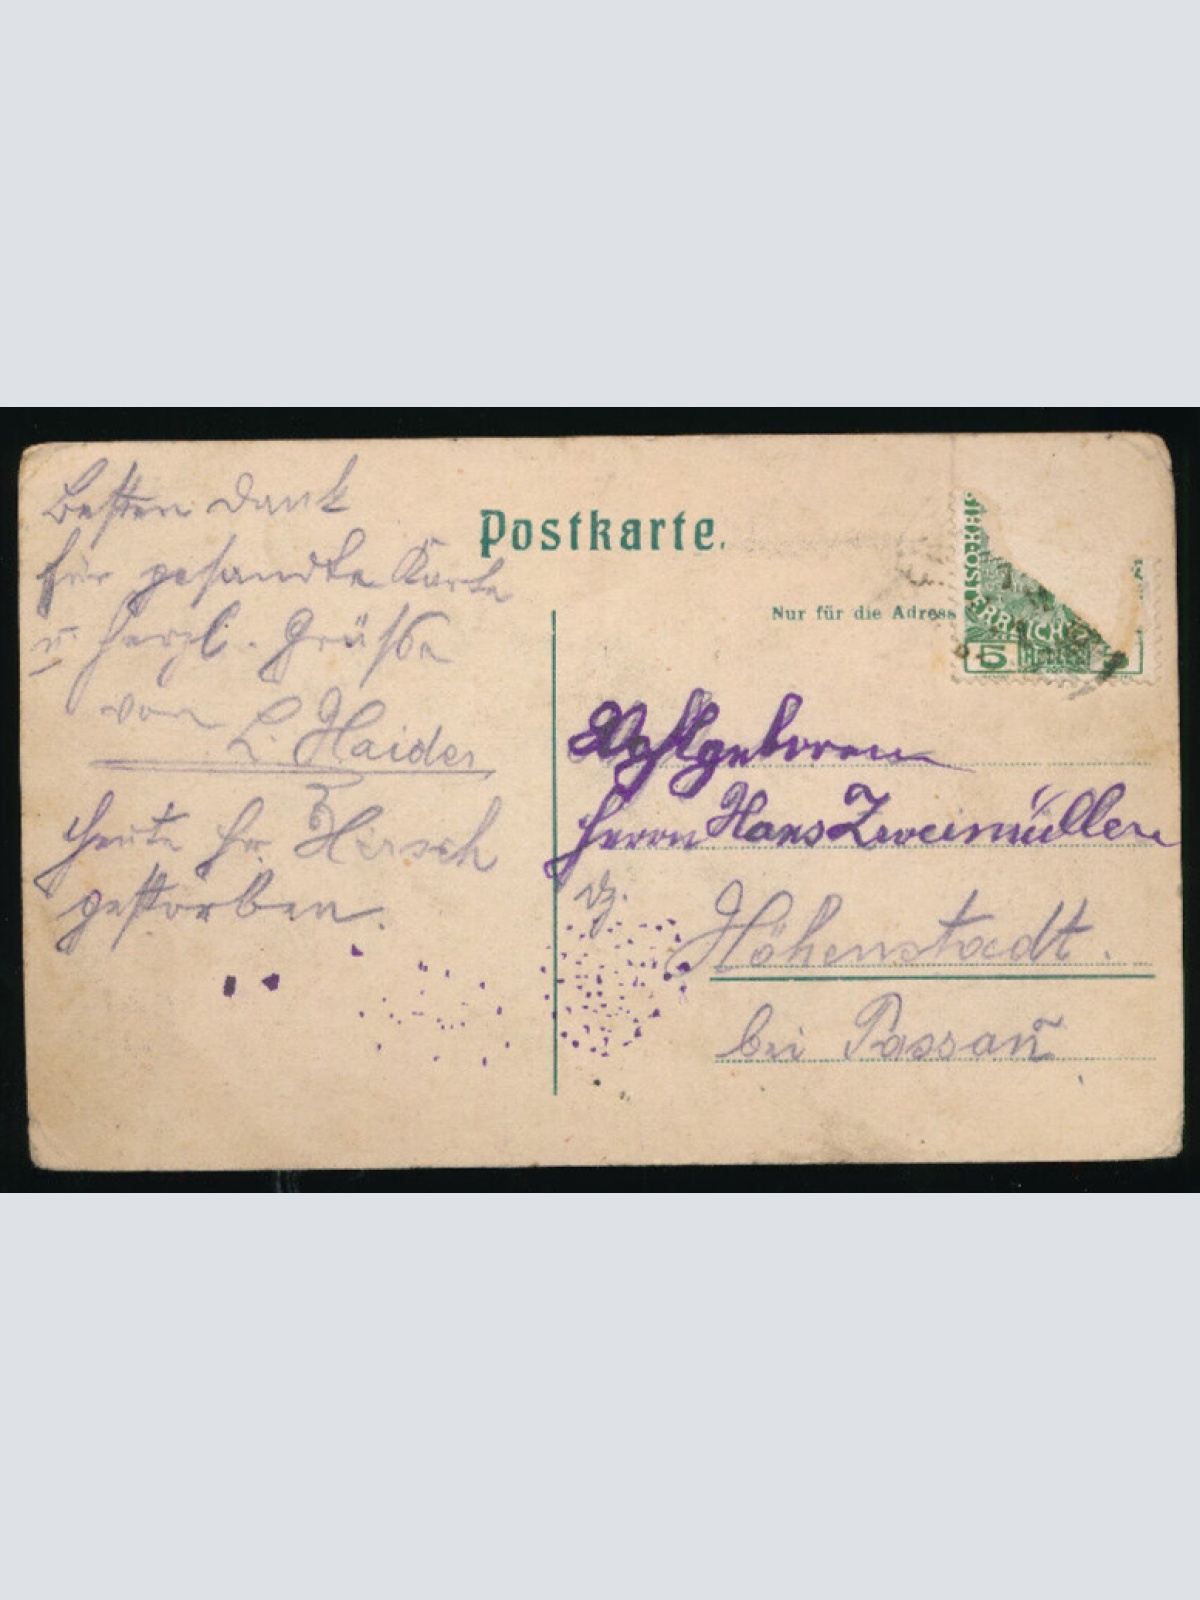 Besten Dank
für gesandte Karte
u. herzl. Grüße
von L. Haider
heute Fr. Hirsch
gestorben.
Postkarte.
Nur für die Adress
5
HELLER
Wohlgeboren
Herrn Hans Zweimüller
Höhenstadt.
bei Passau